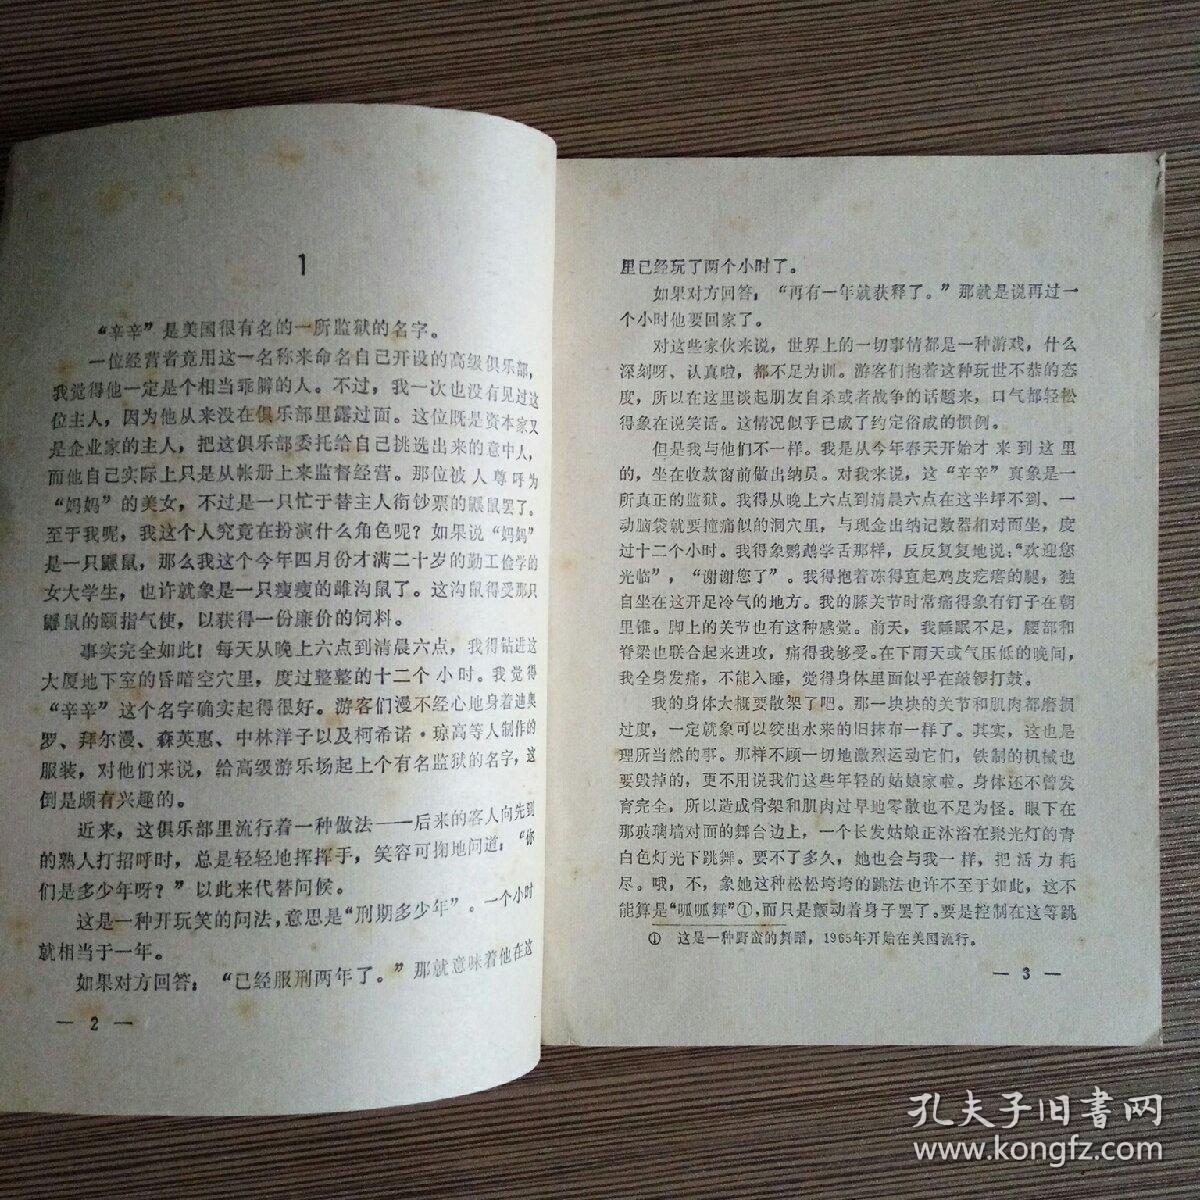 1
“辛辛”是美国很有名的一所监狱的名字。
一位经营者竟用这一名称来命名自己开设的高级俱乐部，
我觉得他一定是个相当乖僻的人。不过，我一次也没有见过这
位主人，因为他从来没在俱乐部里露过面。这位既是资本家又
是企业家的主人，把这俱乐部委托给自己挑选出来的意中人，
而他自己实际上只是从帐册上来监督经营。那位被人尊呼为
“妈妈”的美女，不过是一只忙于替主人衔钞票的鼹鼠罢了。
至于我呢，我这个人究竟在扮演什么角色呢？如果说“妈妈”
是一只鼹鼠，那么我这个今年四月份才满二十岁的勤工俭学的
女大学生，也许就象是一只瘦瘦的雌沟鼠了。这沟鼠得受那只
鼹鼠的颐指气使，以获得一份廉价的饲料。
事实完全如此！每天从晚上六点到清晨六点，我得钻进这
大厦地下室的昏暗空穴里，度过整整的十二个小时。我觉得
“辛辛”这个名字确实起得很好。游客们漫不经心地身着迪奥
罗、拜尔漫、森英惠、中林洋子以及柯希诺·琼高等人制作的
服装，对他们来说，给高级游乐场起上个有名监狱的名字，这
倒是颇有兴趣的。
近来，这俱乐部里流行着一种做法——后来的客人向先到
的熟人打招呼时，总是轻轻地挥挥手，笑容可掬地问道：“你
们是多少年呀？”以此来代替问候。
这是一种开玩笑的问法，意思是“刑期多少年”。一个小时
就相当于一年。
如果对方回答：“已经服刑两年了。”那就意味着他在这
— 2 —
里已经玩了两个小时了。
如果对方回答：“再有一年就获释了。”那就是说再过一
个小时他要回家了。
对这些家伙来说，世界上的一切事情都是一种游戏，什么
深刻呀、认真啦，都不足为训。游客们抱着这种玩世不恭的态
度，所以在这里谈起朋友自杀或者战争的话题来，口气都轻松
得象在说笑话。这情况似乎已成了约定俗成的惯例。
但是我与他们不一样。我是从今年春天开始才来到这里
的，坐在收款窗前做出纳员。对我来说，这“辛辛”真象是一
所真正的监狱。我得从晚上六点到清晨六点在这半坪不到、一
动脑袋就要撞痛似的洞穴里，与现金出纳记数器相对而坐，度
过十二个小时。我得象鹦鹉学舌那样，反反复复地说：“欢迎您
光临”，“谢谢您了”。我得抱着冻得直起鸡皮疙瘩的腿，独
自坐在这开足冷气的地方。我的膝关节时常痛得象有钉子在朝
里锥。脚上的关节也有这种感觉。前天，我睡眠不足，腰部和
脊梁也联合起来进攻，痛得我够受。在下雨天或气压低的晚间，
我全身发痛，不能入睡，觉得身体里面似乎在敲锣打鼓。
我的身体大概要散架了吧。那一块块的关节和肌肉都磨损
过度，一定就象可以绞出水来的旧抹布一样了。其实，这也是
理所当然的事。那样不顾一切地激烈运动它们，铁制的机械也
要毁掉的，更不用说我们这些年轻的姑娘家啦。身体还不曾发
育完全，所以造成骨架和肌肉过早地零散也不足为怪。眼下在
那玻璃墙对面的舞台边上，一个长发姑娘正沐浴在聚光灯的青
白色灯光下跳舞。要不了多久，她也会与我一样，把活力耗
尽。哦，不，象她这种松松垮垮的跳法也许不至于如此，这不
能算是“呱呱舞”①，而只是颤动着身子罢了。要是控制在这等跳
① 这是一种野蛮的舞蹈，1965年开始在美国流行。
— 3 —
孔夫子旧书网
www.kongfz.com